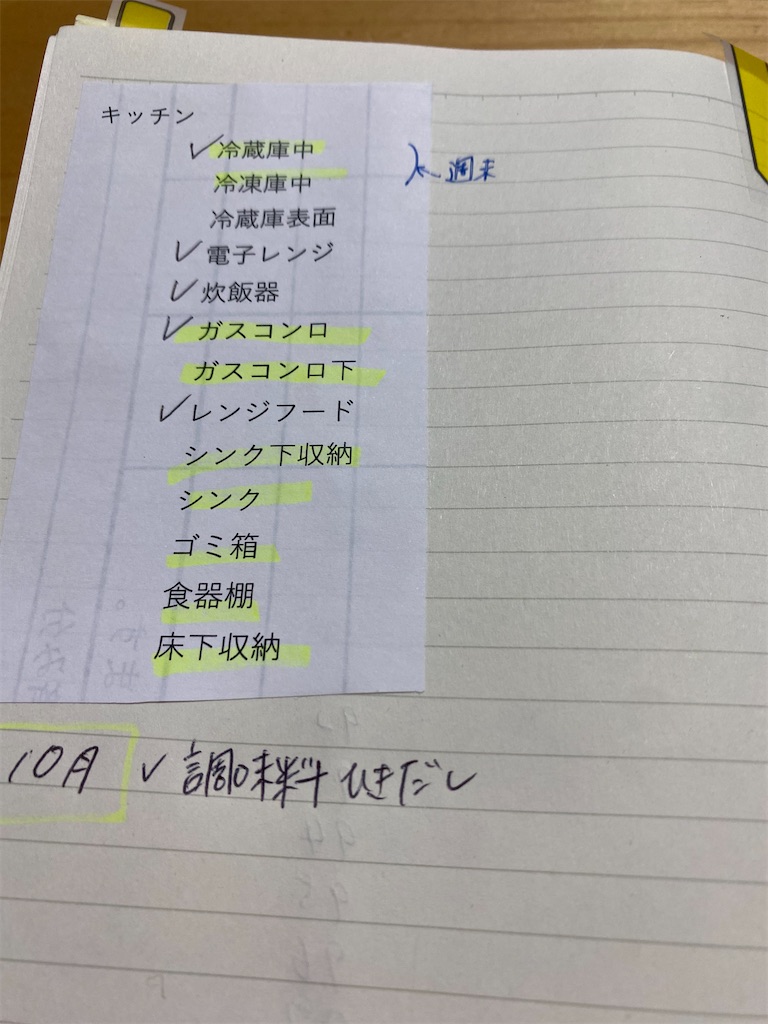 キッチン
✓冷蔵庫中
冷凍庫中
週末
冷蔵庫表面
✓電子レンジ
✓炊飯器
✓ガスコンロ
ガスコンロ下
✓レンジフード
シンク下収納
シンク
ゴミ箱
食器棚
床下収納
10月 ✓調味料ひきだし